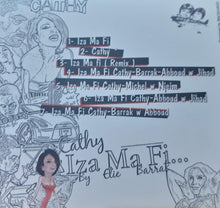 CATHY
1- Iza Ma Fi
2- Cathy
3- Iza Ma Fi ( Remix )
4- Iza Ma Fi Cathy-Barrak-Abboad w Jihad
5- Iza Ma Fi Cathy-Michel w Njaim
6- Iza Ma Fi Cathy-Abboad w Jihad
7- Iza Ma Fi Cathy-Barrak w Abboad
Cathy
Iza Ma Fi...
By Elie Barrak